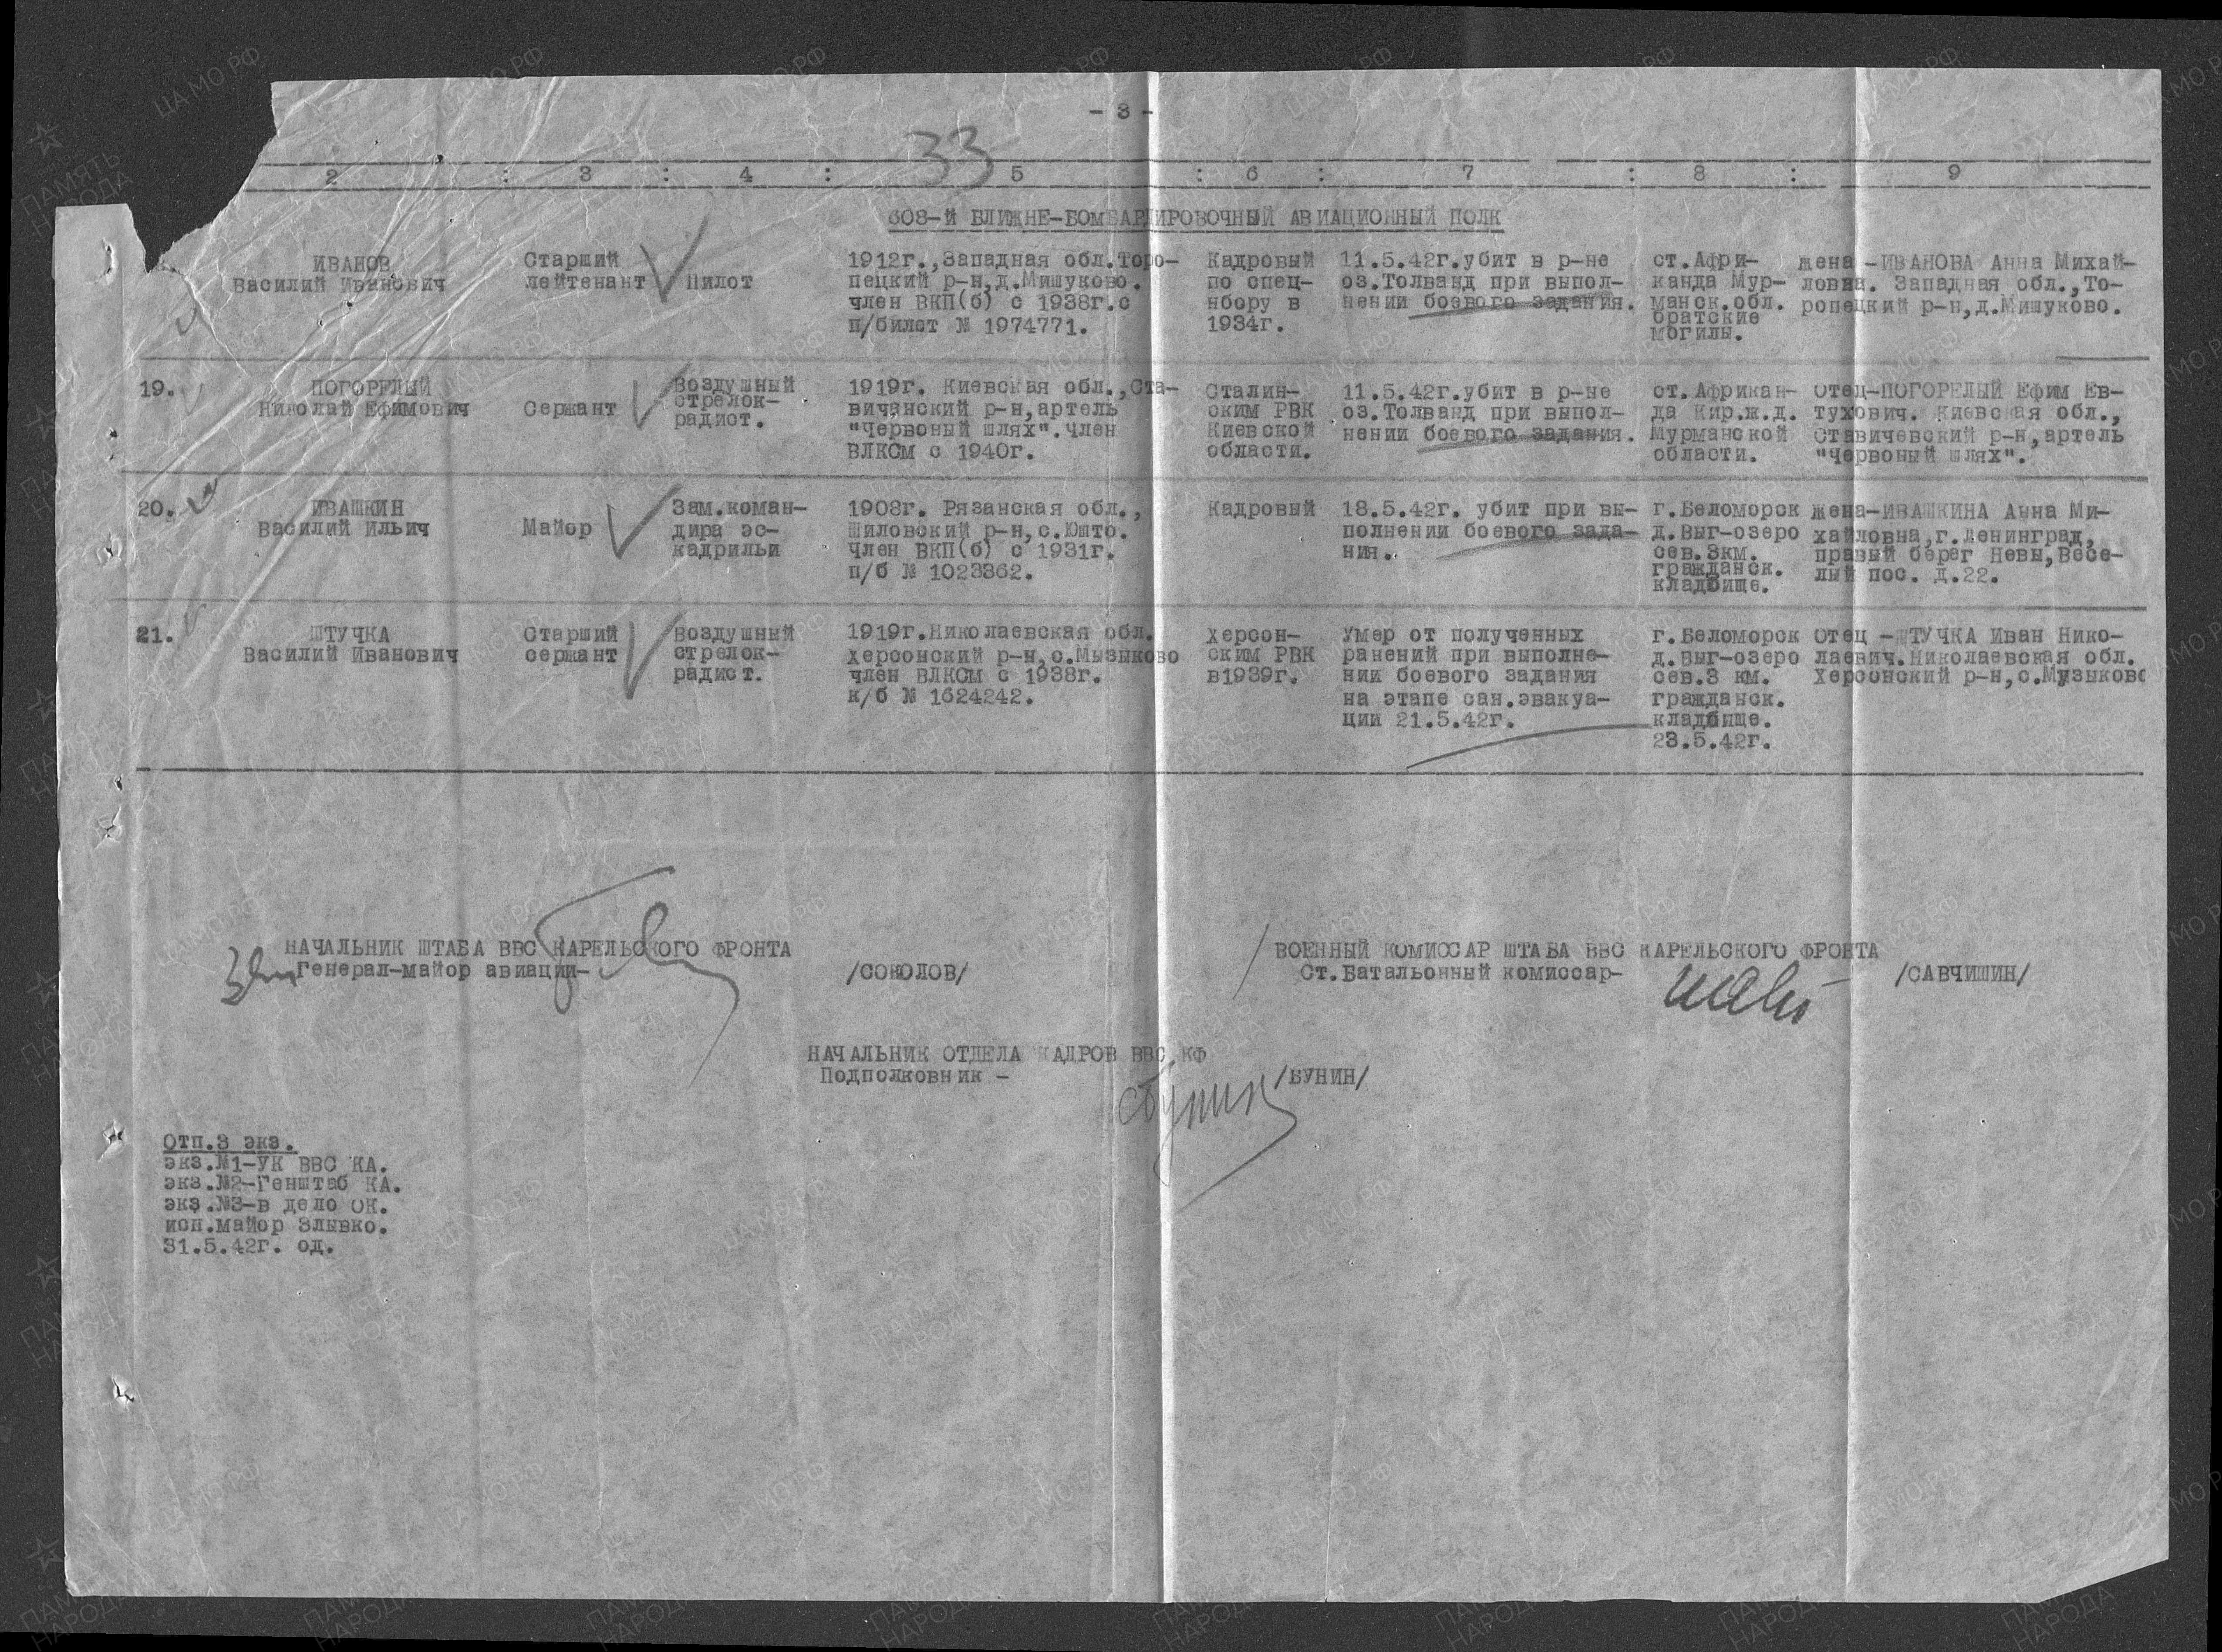 - 3 -
33
2 : 3 : 4 : 5 : 6 : 7 : 8 : 9
608-й БЛИЖНЕ-БОМБАРДИРОВОЧНЫЙ АВИАЦИОННЫЙ ПОЛК
ИВАНОВ
Василий Иванович
Старший
лейтенант
Пилот
1912г.,Западная обл.Торо-
пецкий р-н,д.Мишуково.
член ВКП(б) с 1938г.с
п/билет № 1974771.
Кадровый
по спец-
набору в
1934г.
11.5.42г.убит в р-не
оз.Толванд при выпол-
нении боевого задания.
ст.Афри-
канда Мур-
манск.обл.
братские
могилы.
жена -ИВАНОВА Анна Михай-
ловна. Западная обл.,То-
ропецкий р-н,д.Мишуково.
19.
ПОГОРЕЛЫЙ
Николай Ефимович
Сержант
Воздушный
стрелок-
радист.
1919г. Киевская обл.,Ста-
вичанский р-н,артель
"Червоный шлях".Член
ВЛКСМ с 1940г.
Сталин-
ским РВК
Киевской
области.
11.5.42г.убит в р-не
оз.Толванд при выпол-
нении боевого задания.
ст.Африкан-
да Кир.ж.д.
Мурманской
области.
Отец-ПОГОРЕЛЫЙ Ефим Ев-
тухович. Киевская обл.,
Ставичевский р-н,артель
"Червоный шлях".
20.
ИВАШКИН
Василий Ильич
Майор
Зам.коман-
дира эс-
кадрильи
1908г. Рязанская обл.,
Шиловский р-н,с.Юшто.
Член ВКП(б) с 1931г.
п/б № 1023362.
Кадровый
18.5.42г. убит при вы-
полнении боевого зада-
ния.
г.Беломорск
д.Выг-озеро
сев.3км.
гражданск.
кладбище.
жена-ИВАШКИНА Анна Ми-
хайловна,г.Ленинград,
правый берег Невы,Весе-
лый пос. д.22.
21.
ШТУЧКА
Василий Иванович
Старший
сержант
Воздушный
стрелок-
радист.
1919г.Николаевская обл.
Херсонский р-н,с.Музыково
член ВЛКСМ с 1938г.
к/б № 1624242.
Херсон-
ским РВК
в1939г.
Умер от полученных
ранений при выполне-
нии боевого задания
на этапе сан.эвакуа-
ции 21.5.42г.
г.Беломорск
д.Выг-озеро
сев.3 км.
гражданск.
кладбище.
23.5.42г.
Отец -ШТУЧКА Иван Нико-
лаевич.Николаевская обл.
Херсонский р-н,с.Музыково
НАЧАЛЬНИК ШТАБА ВВС КАРЕЛЬСКОГО ФРОНТА
Генерал-майор авиации-
/СОКОЛОВ/
ВОЕННЫЙ КОМИССАР ШТАБА ВВС КАРЕЛЬСКОГО ФРОНТА
Ст.Батальонный комиссар-
/САВЧИШИН/
НАЧАЛЬНИК ОТДЕЛА КАДРОВ ВВС КФ
Подполковник -
/БУНИН/
Отп.3 экз.
экз.№1-УК ВВС КА.
экз.№2-Генштаб КА.
экз.№3-в дело ОК.
исп.майор Злывко.
31.5.42г. од.
ЦАМО.РФ
ПАМЯТЬ
НАРОДА